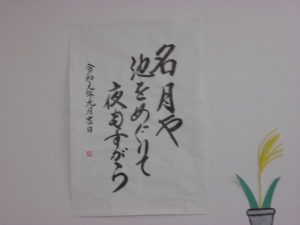 名月や
池をめぐりて
夜もすがら
令和元年九月吉日